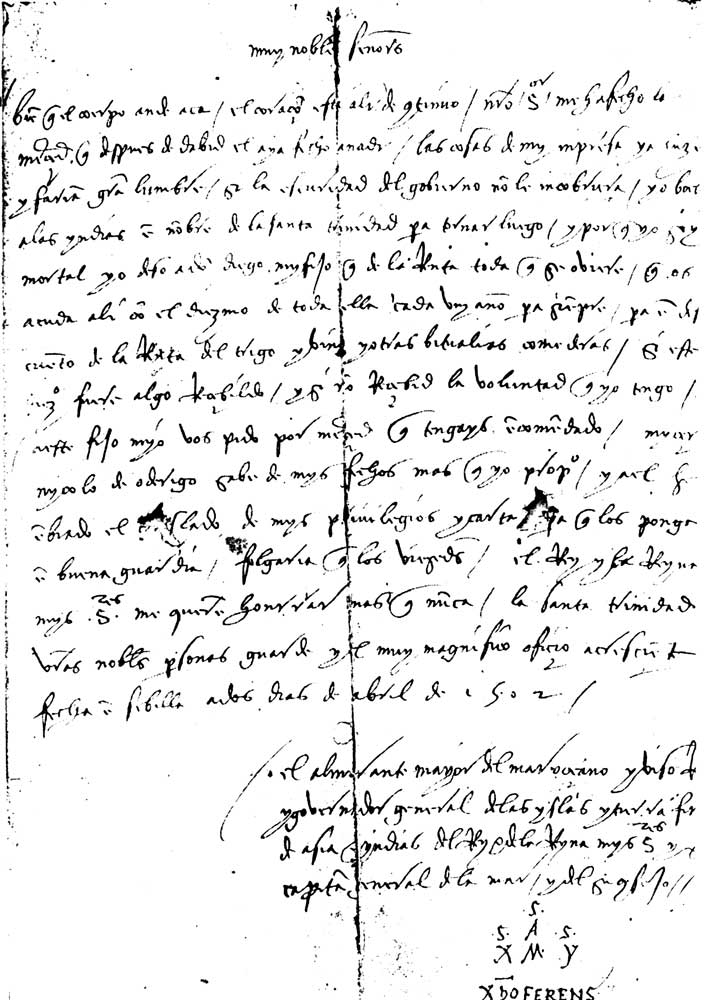 muy nobles señores
bie q el cuerpo ande aca / el coraço esta ali de cotinuo / nro Sor me ha fecho la
merced q despues de dabid el aya fecho a nadi / las cosas de my impresa ya luze
y faria gra lumbre / si la escuridad del gobierno no le incobriera / yo bue
a las yndias e nobre de la santa trinidad pa tornar luego / y porq yo soy
mortal yo dexo a do diego my fijo q de la Reta toda q se oviere / q os
acuda ali co el diezmo de toda ella cada un año pa siepre / pa e des
cueto de la Reta del trigo y vino y otras bitualias comederas / si este
diezo fuere algo Recebildo / y si no Recebid la voluntad q yo tengo /
a este fijo myo vos pido por merced q tengays ecomedado / micer
nycolo de oderigo sabe de mys fechos mas q yo propo / y a el he
ebiado el treslado de mys privilegios y cartas pa q los ponga
e buena guardia / folgaria q los viesedes / el Rey y la Reyna
mys Sres me quere honrrar mas q nuca / la santa trinidad
vras nobles psonas guarde y el muy magnifico oficio acresciete
fecha e sebilla a dos dias de abril de 1502 /
el almirante mayor del mar oceano y viso R
y governador general de las yslas y tierra fir
de asia e yndias del Rey e de la Reyna mys Sres y
capita general de la mar / y del su cosejo //
.S.
.S. A .S.
X M Y
XpoFERENS